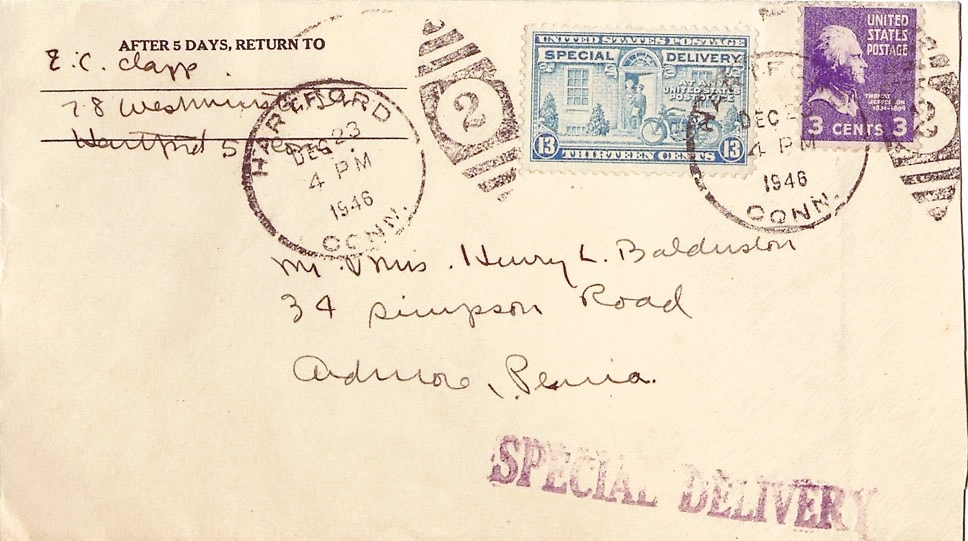 AFTER 5 DAYS, RETURN TO
E. C. Clapp.
78 Westminster
Hartford 5 Conn.
HARTFORD
DEC 23
4 PM
1946
CONN.
2
UNITED STATES POSTAGE
SPECIAL DELIVERY
UNITED STATES POSTAGE
13 THIRTEEN CENTS 13
UNITED
STATES
POSTAGE
THOMAS
JEFFERSON
3 CENTS 3
HARTFORD
DEC
4 PM
1946
CONN.
2
Mr. & Mrs. Henry L. Balderston
34 Simpson Road
Ardmore, Penna.
SPECIAL DELIVERY